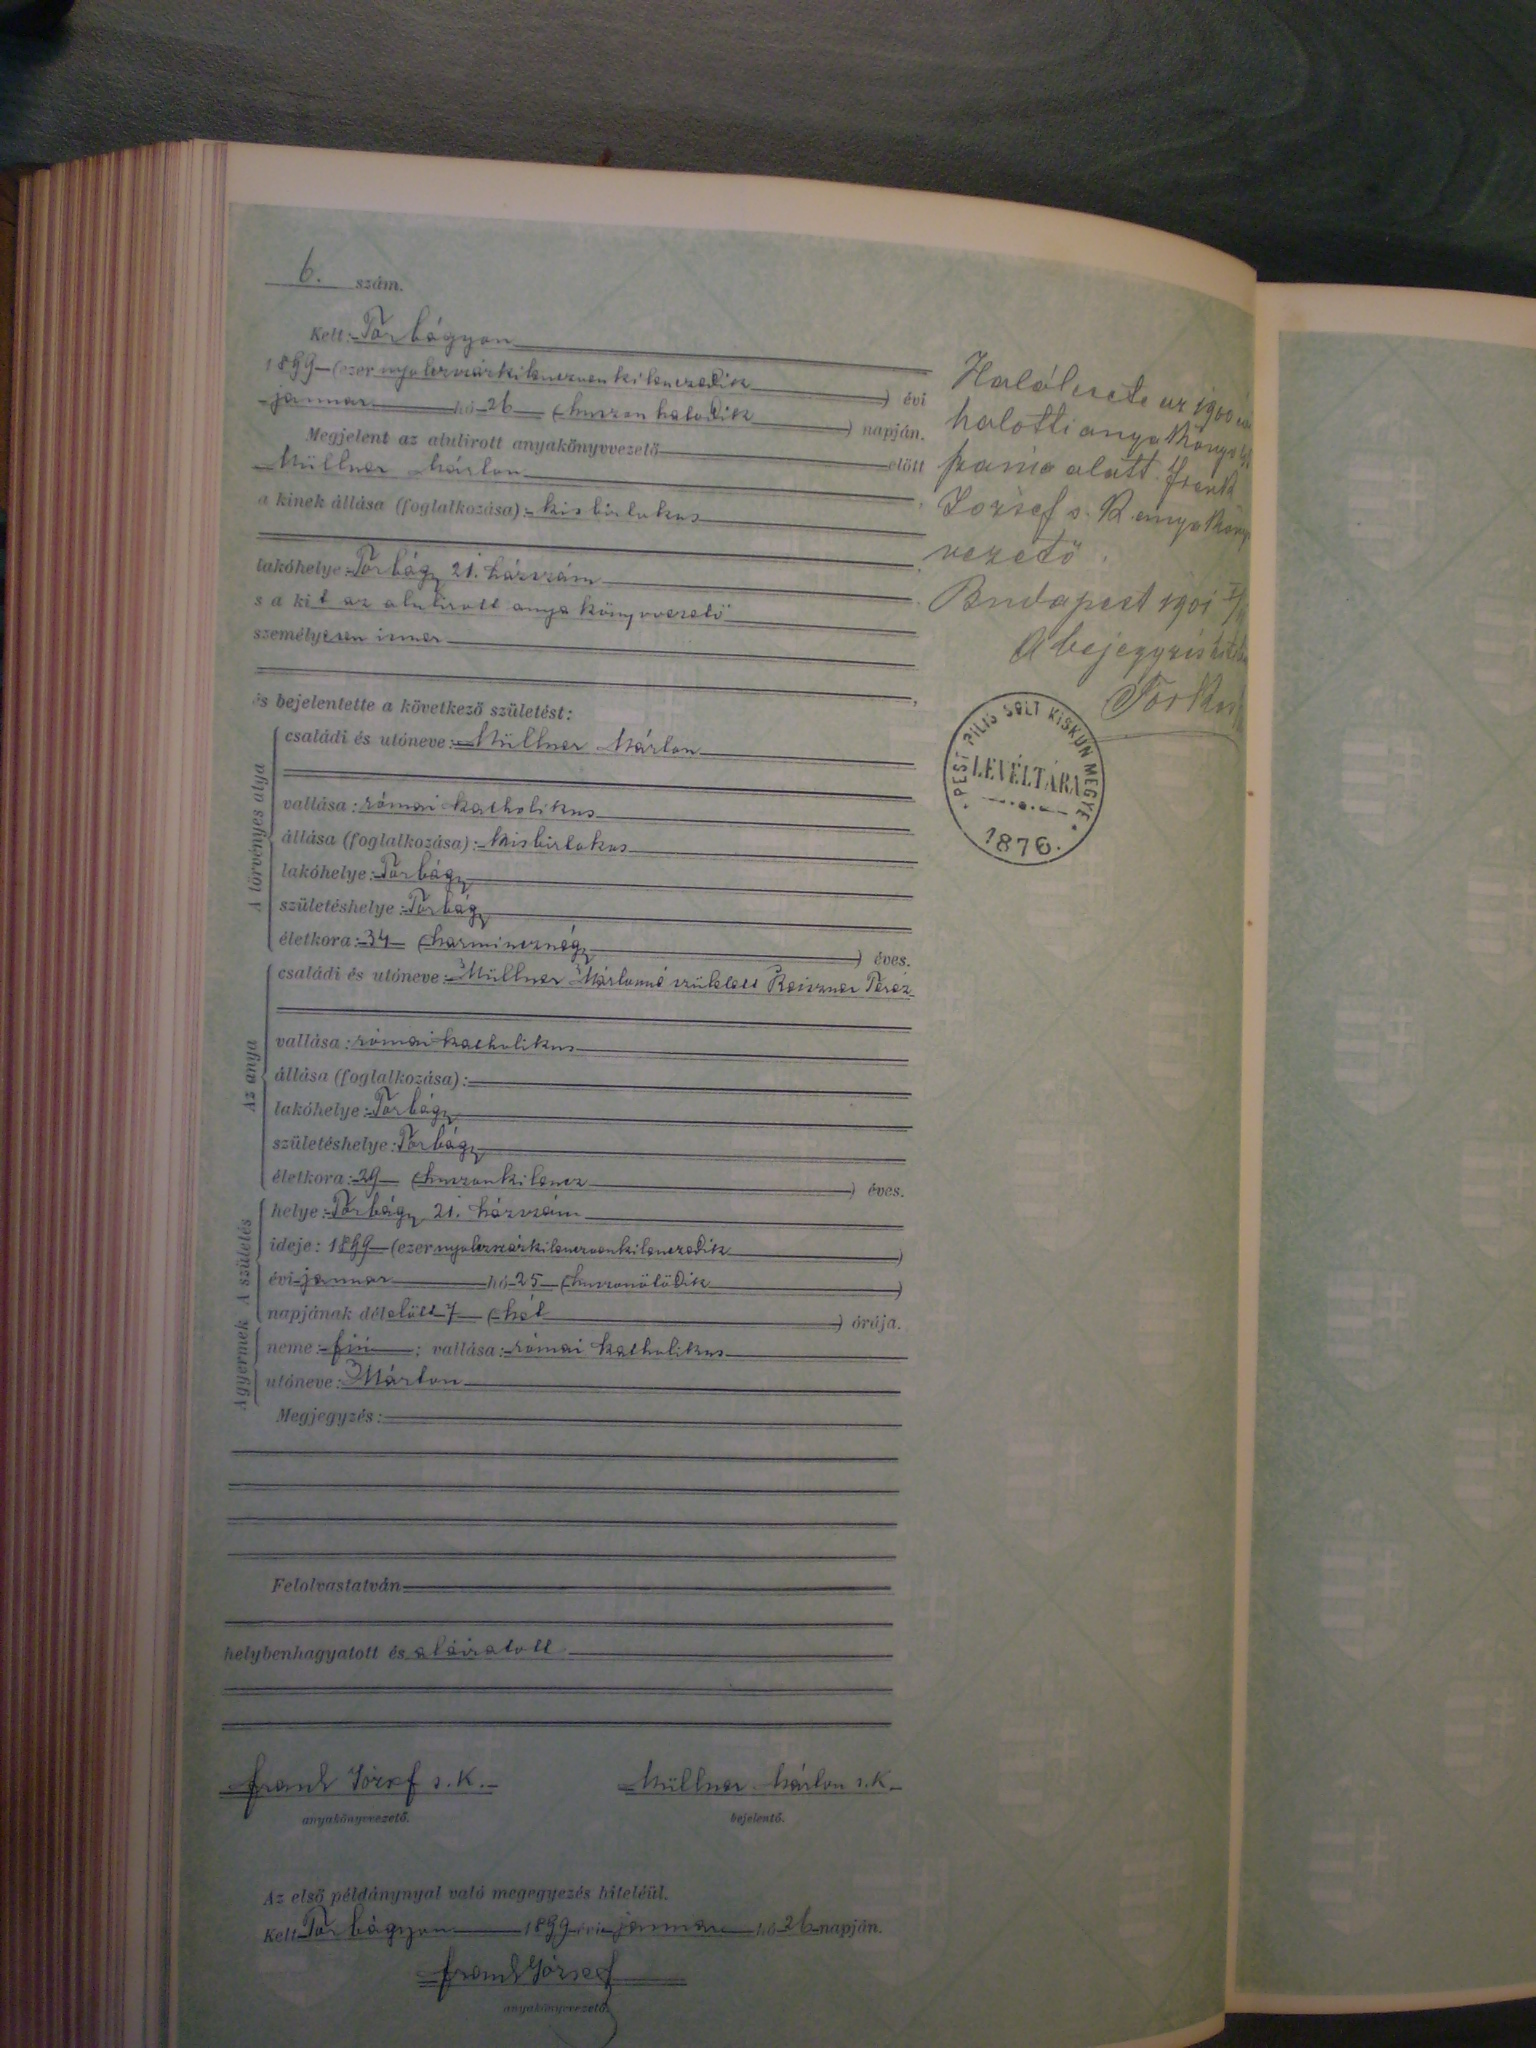 6. szám.
Kelt: Törbágyon
1899 (ezernyolczszázkilenczvenkilenczedik) évi
januar hó 26 (huszonhatodik) napján.
Megjelent az alulirott anyakönyvvezető előtt
Müllner Márton,
a kinek állása (foglalkozása): kisbirtokos
lakóhelye: Törbágy 21. házszám
s a kit az alulirott anyakönyvvezető
személyesen ismer
és bejelentette a következő születést:
A törvényes atya
családi és utóneve: Müllner Márton
vallása: római katholikus
állása (foglalkozása): kisbirtokos
lakóhelye: Törbágy
születéshelye: Törbágy
életkora: 34 (harmincznégy) éves.
Az anya
családi és utóneve: Müllner Mártonné született Reiszner Teréz
vallása: római katholikus
állása (foglalkozása):
lakóhelye: Törbágy
születéshelye: Törbágy
életkora: 29 (huszonkilencz) éves.
A születés
helye: Törbágy 21. házszám
ideje: 1899 (ezernyolczszázkilenczvenkilenczedik)
évi januar hó 25 (huszonötödik)
napjának délelött 7 (hét) órája.
A gyermek
neme: fiú; vallása: római katholikus
utóneve: Márton
Megjegyzés:
Felolvastatván
helybenhagyatott és aláiratott
Frank József s. k. Müllner Márton s. k.
anyakönyvvezető. bejelentő.
Az első példánynyal való megegyezés hiteléül.
Kelt Törbágyon 1899 évi januar hó 26 napján.
Frank József
anyakönyvvezető.
Halálesete az 1900
halotti anyakönyv
alatt. Frank
József s. k. anyaköny
vezető.
Budapest 1901
A bejegyzés
PEST PILIS SOLT KISKUN MEGYE
LEVÉLTÁRA
1876.